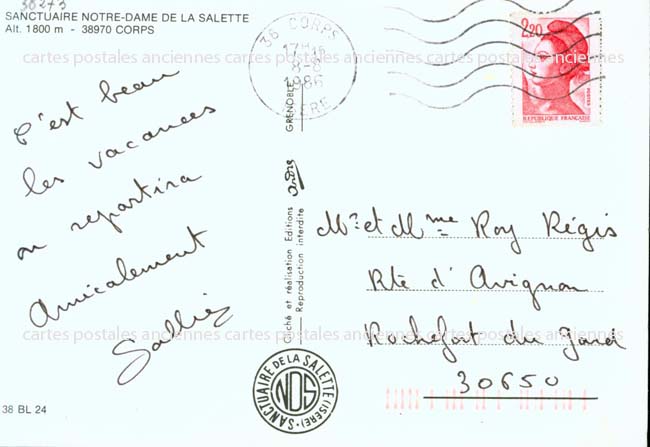 38273
SANCTUAIRE NOTRE-DAME DE LA SALETTE
Alt. 1800 m - 38970 CORPS
C'est beau
les vacances
on repartira
Amicalement
36 CORPS
8-8
1986
ISERE
2,20
REPUBLIQUE FRANÇAISE
GRENOBLE
Cliché et réalisation Editions André
Reproduction interdite
Mr et Mme Roy Régis
Rte d'Avignon
Rochefort du Gard
30650
SANCTUAIRE DE LA SALETTE (ISERE)
NDS
38 BL 24
cartes postales anciennes cartes postales anciennes cartes postales anciennes
cartes postales anciennes cartes postales anciennes cartes postales anciennes